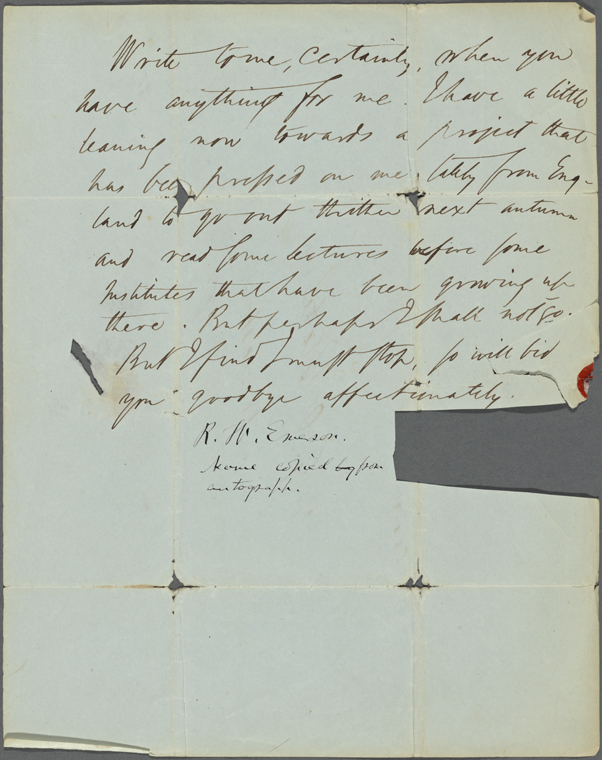 Write to me, certainly, when you
have anything for me. I have a little
leaning now towards a project that
has been pressed on me lately from Eng-
land to go out thither next autumn
and read some lectures before some
Institutes that have been growing up
there. But perhaps I shall not go.
But I find I must stop, so will bid
you goodbye affectionately.
R. W. Emerson.
Name copied by from
autograph.